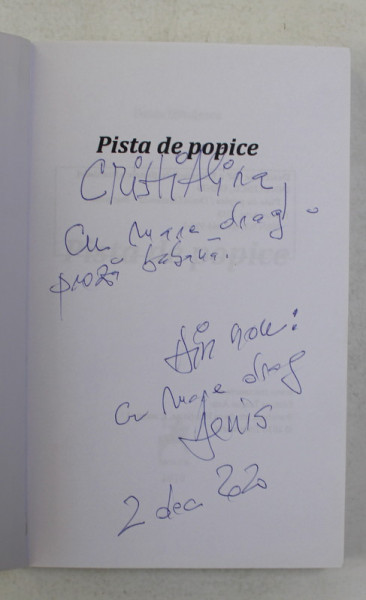 Pista de popice
Cristi Alina,
Cu mare drag -
proză babană.
Din nou:
cu mare drag
Denis
2 dec 2020